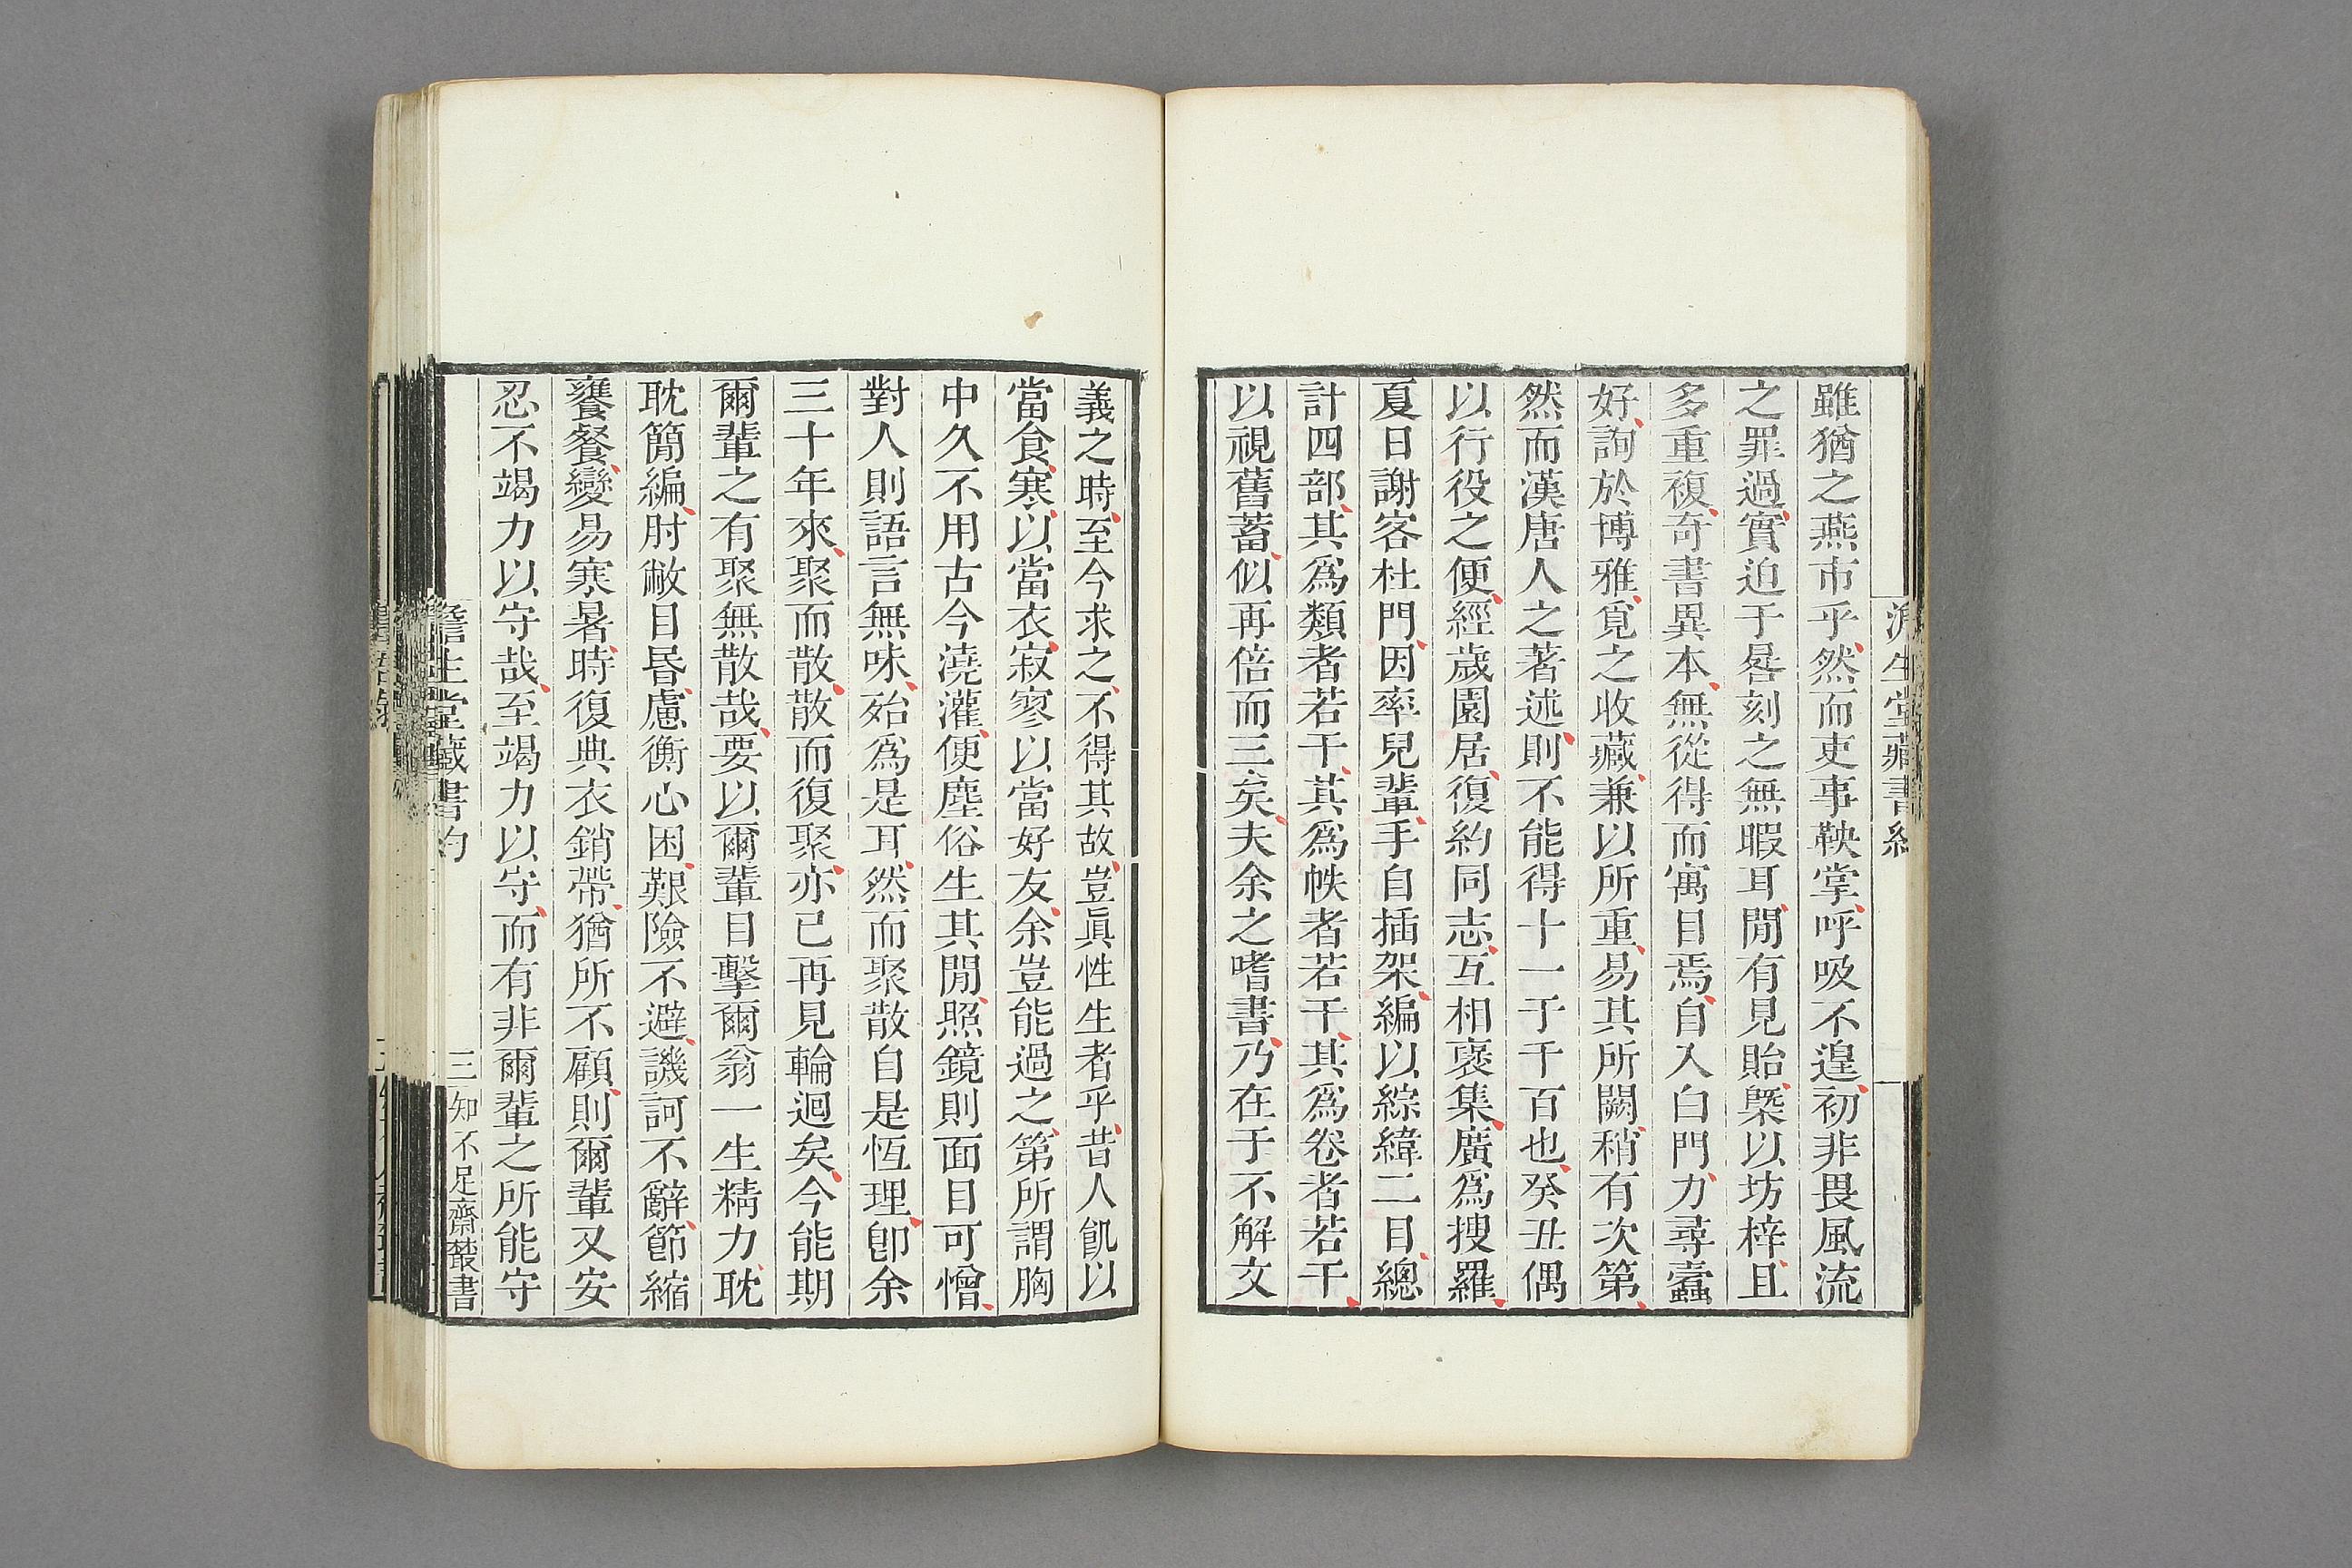 雖猶之燕市乎然而吏事鞅掌呼吸不遑初非畏風流
之罪過實迫于晷刻之無暇耳閒有見貽槩以坊梓且
多重複奇書異本無從得而寓目焉自入白門力尋蠹
好詢於博雅覓之收藏兼以所重易其所闕稍有次第
然而漢唐人之著述則不能得十一于千百也癸丑偶
以行役之便經歲園居復約同志互相裒集廣爲搜羅
夏日謝客杜門因率兒輩手自插架編以綜緯二目總
計四部其爲類者若干其爲帙者若干其爲卷者若干
以視舊蓄似再倍而三矣夫余之嗜書乃在于不解文
義之時至今求之不得其故豈眞性生者乎昔人飢以
當食寒以當衣寂寥以當好友余豈能過之第所謂胸
中久不用古今澆灌便塵俗生其閒照鏡則面目可憎
對人則語言無味殆爲是耳然而聚散自是恆理卽余
三十年來聚而散散而復聚亦已再見輪迴矣今能期
爾輩之有聚無散哉要以爾輩目擊爾翁一生精力耽
耽簡編肘敝目昏慮衡心困艱險不避譏訶不辭節縮
饔餐變易寒暑時復典衣銷帶猶所不顧則爾輩又安
忍不竭力以守哉至竭力以守而有非爾輩之所能守
澹生堂藏書約
三
知不足齋叢書